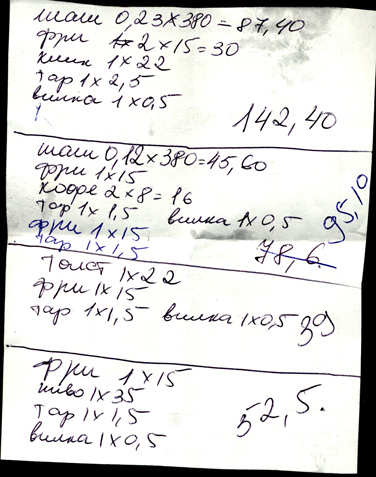 шаш 0,23х380=87,40
фри 2х15=30
клик 1х22
тар 1х2,5
вилка 1х0,5
142,40
шаш 0,12х380=45,60
фри 1х15
кофе 2х8=16
тар 1х1,5 вилка 1х0,5
фри 1х15
тар 1х1,5
95,10
78,6
1х22
фри 1х15
тар 1х1,5 вилка 1х0,5 39
фри 1х15
пиво 1х35
тар 1х1,5
вилка 1х0,5
52,5.